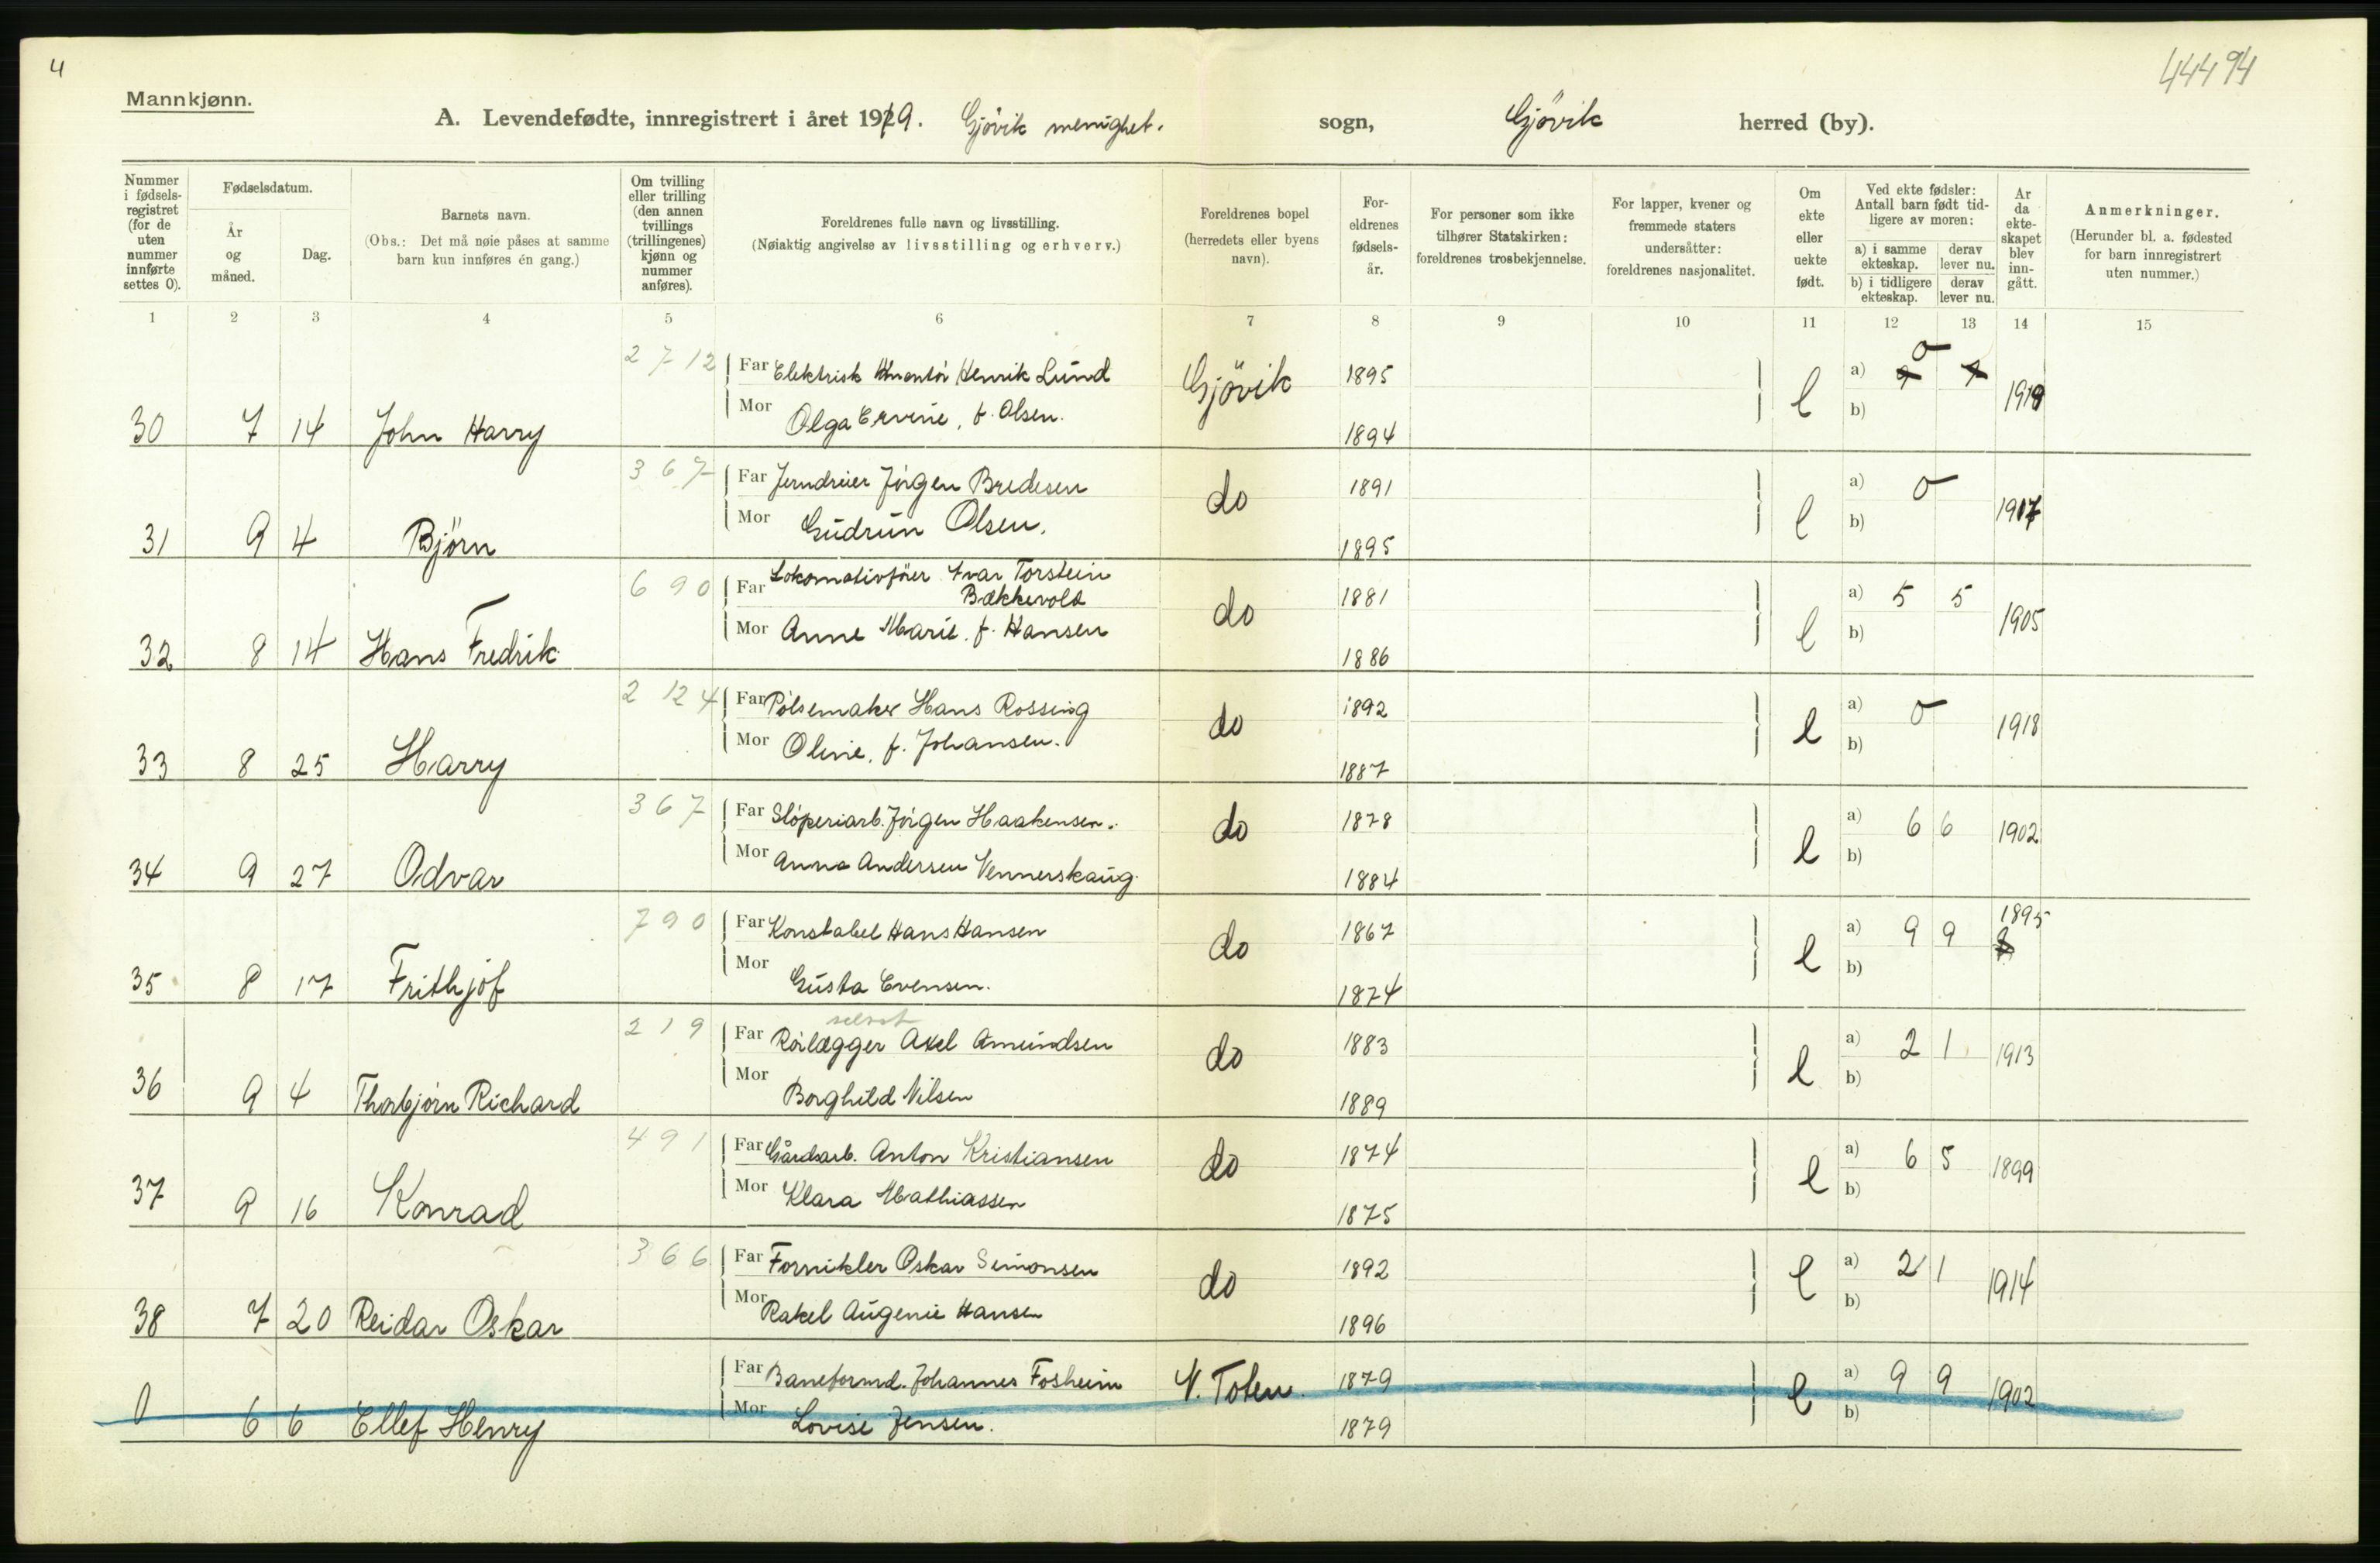 4
44494
Mannkjønn.
A. Levendefødte, innregistrert i året 1919. Gjövik menighet. sogn, Gjövik herred (by).
Nummer i fødselsregistret (for de uten nummer innførte settes 0).
Fødselsdatum.
År og måned.
Dag.
Barnets navn.
(Obs.: Det må nøie påses at samme barn kun innføres én gang.)
Om tvilling eller trilling (den annen tvillings (trillingenes) kjønn og nummer anføres).
Foreldrenes fulle navn og livsstilling.
(Nøiaktig angivelse av livsstilling og erhverv.)
Foreldrenes bopel (herredets eller byens navn).
Foreldrenes fødselsår.
For personer som ikke tilhører Statskirken: foreldrenes trosbekjennelse.
For lapper, kvener og fremmede staters undersåtter: foreldrenes nasjonalitet.
Om ekte eller uekte født.
Ved ekte fødsler: Antall barn født tidligere av moren:
a) i samme ekteskap. derav lever nu.
b) i tidligere ekteskap. derav lever nu.
Ar da ekteskapet blev inngått.
Anmerkninger.
(Herunder bl. a. fødested for barn innregistrert uten nummer.)
1 2 3 4 5 6 7 8 9 10 11 12 13 14 15
2 7 12 Far Elektrisk Montör Henrik Lund Gjövik 1895 a) 0
30 7 14 John Harry Mor Olga Ervine, f. Olsen. 1894 e b) 1918
3 6 7 Far Jerndreier Jörgen Bredesen do 1891 a) 0
31 9 4 Björn Mor Gudrun Olsen. 1895 e b) 1917
6 9 0 Far Lokomotivföier Ivar Torstein Bækkevold do 1881 a) 5 5
32 8 14 Hans Fredrik Mor Anne Marie, f. Hansen 1886 e b) 1905
2 12 4 Far Pölsemaker Hans Rossing do 1892 a) 0
33 8 25 Harry Mor Oline, f. Johansen. 1887 e b) 1918
3 6 7 Far Slöperiarb. Jörgen Haakensen. do 1878 a) 6 6
34 9 27 Odvar Mor Anna Andersen Vennerskaug. 1884 e b) 1902
7 9 0 Far Konstabel Hans Hansen do 1867 a) 9 9 1895
35 8 17 Frithjof Mor Gusta Evensen. 1874 e b)
selvst
2 1 9 Far Rörlægger Axel Amundsen do 1883 a) 2 1
36 9 4 Thorbjörn Richard Mor Borghild Nilsen 1889 e b) 1913
4 9 1 Far Gårdsarb. Anton Kristiansen do 1874 a) 6 5
37 9 16 Konrad Mor Klara Mathiassen 1875 e b) 1899
3 6 6 Far Fornikler Oskar Simonsen do 1892 a) 2 1
38 7 20 Reidar Oskar Mor Rakel Augenie Hansen 1896 e b) 1914
Far Baneformd. Johannes Fosheim V. Toten. 1879 a) 9 9
0 6 6 Ellef Henry Mor Lovise Jensen. 1879 e b) 1902